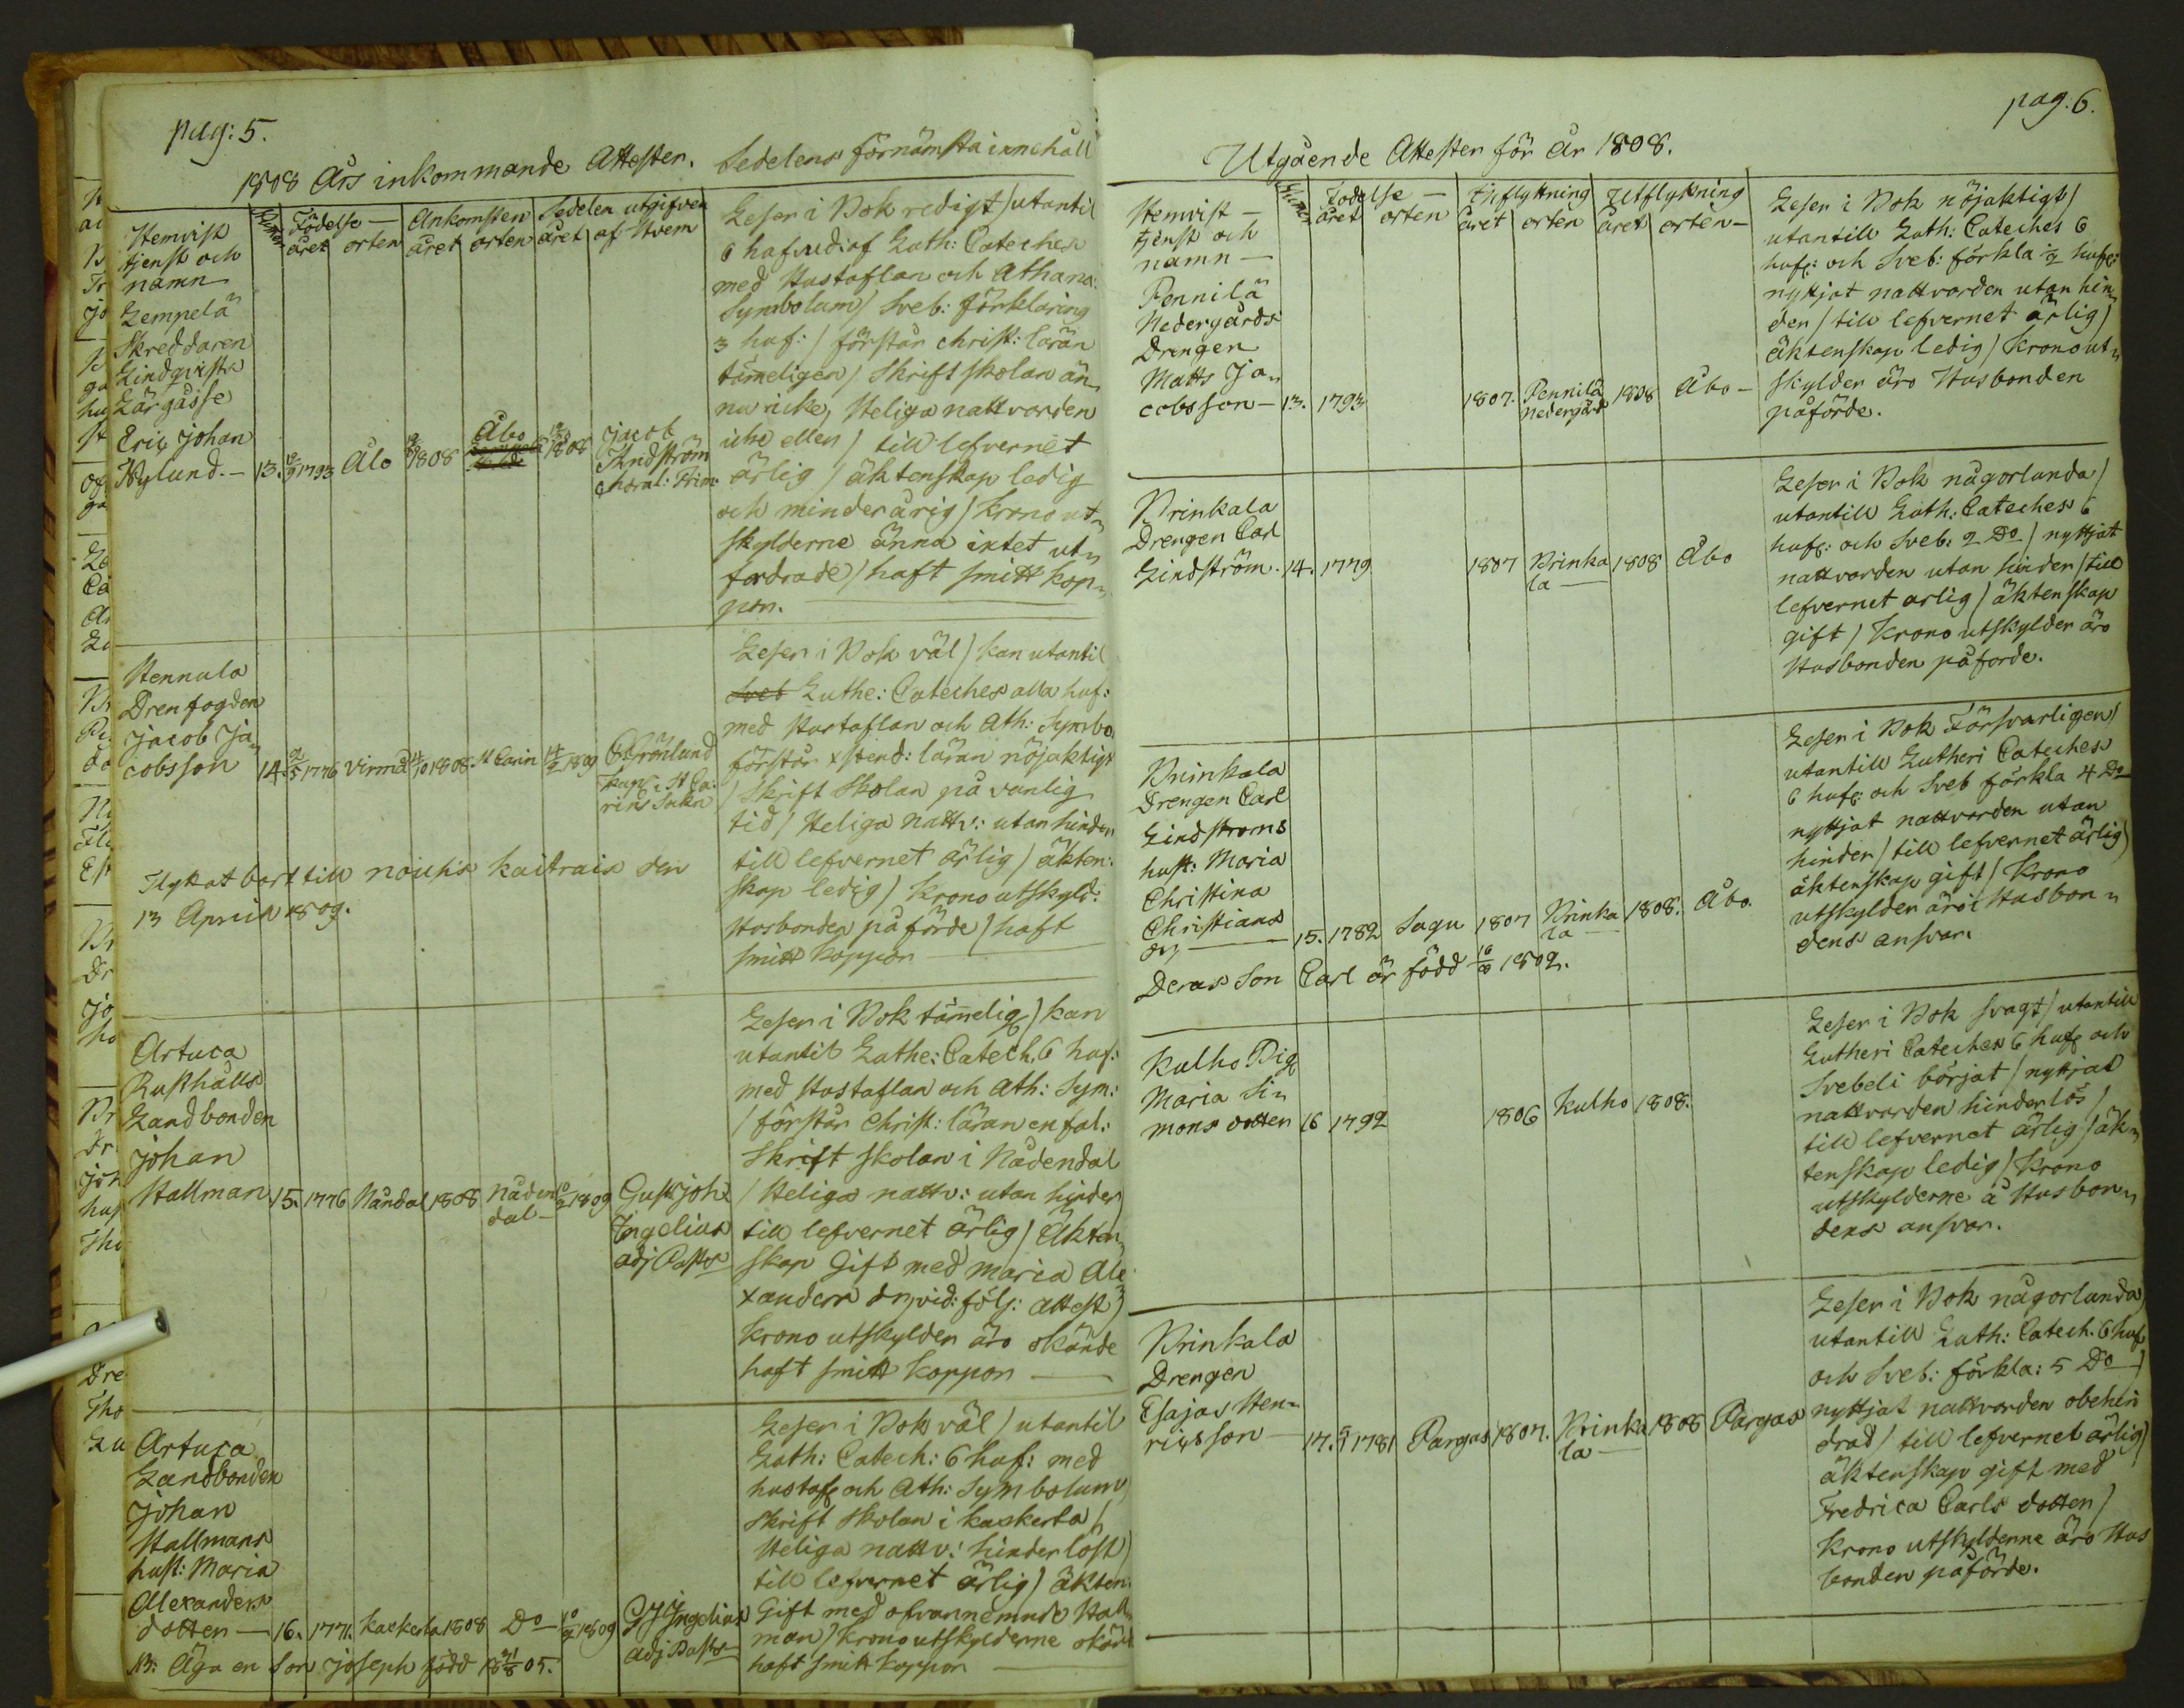 pag: 5.
1808 Års inkommande Attester. Sedelens förnämsta innehåll
Hemvist
tjenst och
namn
Födelse —
året orten
Ankomsten
året orten
Sedelen utgifven
året af Hvem
Lempelä
Skreddaren
Lindqvists
Lärgåsse
Eric Johan
Nylund. — 13. 1793 Åbo 1808 Åbo 1808 Jacob
Lindström
Läser i Bok redigt / utantil
6 hafvud: af Luth: Cateches
med Hustaflan och Athana:
Symbolum / Sveb: förklaring
3 huf: / förstår christ: läran
tämeligen / Skriftskolan än„
nu icke, Heliga nattvarden
icke eller / till lefvernet
ärlig / äktenskap ledig
och minderårig / Krono ut„
skylderne ännu intet ut„
fordrade / haft smitt kop„
por.
Hennala
Drenfogden
Jacob Ja„
cobsson 14. 1776 Virmo 1808. St Carin 1809 Grönlund
Kap: i St Ca„
rins Sokn
Läser i Bok väl / kan utantil
Sveb Luthe: Cateches alla huf:
med Hustaflan och Ath: Symbo
förstår xstend: läran nöjaktigt
/ Skrift Skolan på vanlig
tid / Heliga nattv: utan hinder
till lefvernet ärlig / äkten:
skap ledig / Krono utskyld:
Husbonden påförde / haft
smitt koppor —
Flyttat bort till nousis kaitrais den
13 April 1809.
Artuca
Rusthålls
Landbonden
Johan
Hallman 15. 1776 Nåndal 1808 Nåden
dal — 1809 Gust Joh
Ingelius
adj Past
Läser i Bok tämelig / kan
utantil Luthe: Catech. 6 huf:
med Hustaflan och Ath: Sym:
/ förstår Christ: läran enfal:
Skrift skolan i Nådendal
/ Heliga nattv: utan hinder
till lefvernet ärlig / Äkten„
skap Gift med Maria Ale„
xanders dr, vid: följ: attest /
Krono utskylder äro skände
haft smitt koppor —
Artuca
Landbonden
Johan
Hallmans
hust: Maria
Alexanders
dotter — 16. 1771. Kaskerta 1808 Do — 1809 G J Ingelius
adj Past
NB: Äga en Son Joseph född 1805.
Läser i Bok väl / utantil
Luth: Catech: 6 huf: med
hustafl och Ath: Symbolum
Skrift skolan i kaskerta /
Heliga nattv: hinderlöst /
till lefvernet ärlig / äkten:
Gift med ofvannemnde Hall„
man / Krono utskylderne skände
haft smitt koppor —
pag. 6.
Utgående Attester för År 1808.
Hemvist —
tjenst och
namn —
Födelse —
året orten
Inflyttning
året orten
Utflyttning
året orten —
Pennilä
Nedergårds
Drengen
Matts Ja„
cobsson — 13. 1793 1807. Pennilä
Nedergård 1808 Åbo —
Läser i Bok nöjaktigt /
utantill Luth: Cateches 6
huf: och Sveb: förkla 2 huf:
nyttjat nattvarden utan hin„
der / till lefvernet ärlig /
äktenskap ledig / Krono ut„
skylder äro Husbonden
påförde.
Prinkala
Drengen Carl
Lindström. 14. 1779 1807 Prinka
la — 1808 Åbo
Läser i Bok någorlunda /
utantill Luth: Cateches 6
huf: och Sveb: 2 Do / nyttjat
nattvarden utan hinder / till
lefvernet ärlig / äktenskap
gift / Krono utskylder äro
Husbonden påförde.
Prinkala
Drengen Carl
Lindströms
hust: Maria
Christina
Christians
dr — 15. 1782 Sagu 1807 Prinka
la — 1808. Åbo.
Deras Son Carl är född 1802.
Läser i Bok Försvarligen /
utantill Lutheri Cateches
6 huf: och Sveb förkla 4 Do
nyttjat nattvarden utan
hinder / till lefvernet ärlig /
äktenskap gift / Krono
utskylder äro i Husbon„
dens ansvar.
Kulho Pig
Maria Si„
mons dotter 16 1792 1806 Kulho 1808.
Läser i Bok svagt / utantill
Lutheri Cateches 6 huf och
Svebeli börjat / nyttjat
nattvarden hinderlös /
till lefvernet ärlig / äk„
tenskap ledig / Krono
utskylderne å Husbon„
dens ansvar.
Prinkala
Drengen
Esajas Hen„
ricsson — 17. 1781 Pargas 1807. Prinka
la — 1808 Pargas
Läser i Bok någorlunda /
utantill Luth: Catech. 6 huf
och Sveb: förkla: 5 Do /
nyttjat nattvarden obehin
drad / till lefvernet ärlig /
äktenskap gift med
Fredrica Carls dotter /
Krono utskylderne äro Hus
bonden påförde.